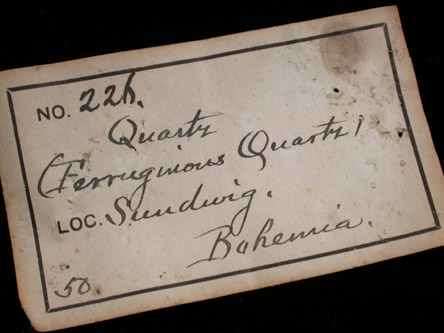 NO. 226.
Quartz
(Ferruginous Quartz)
LOC. Sundwig.
Bohemia.
50